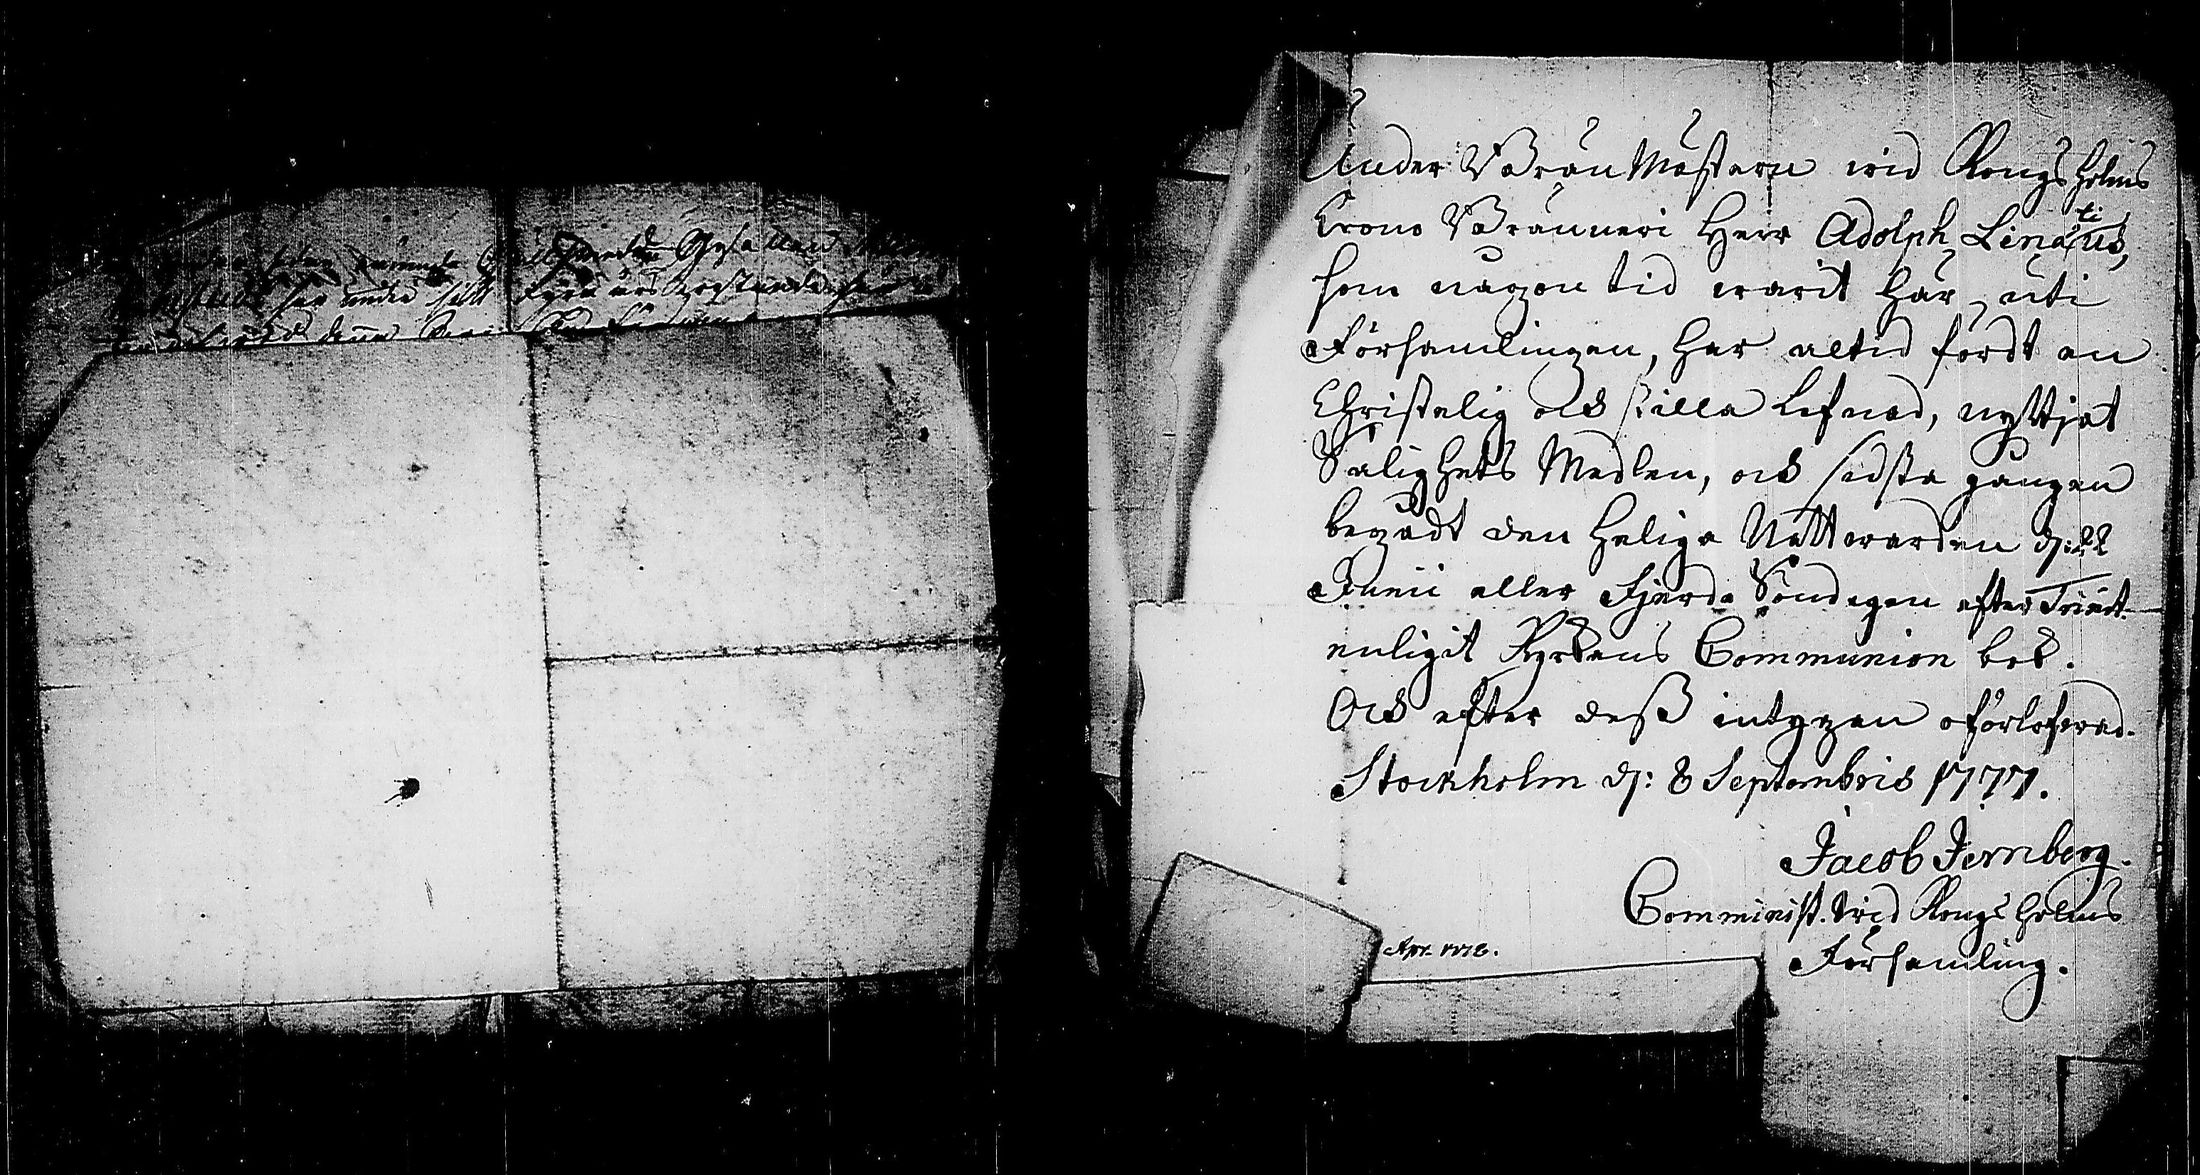 under sitt
denna
Under Brän Mästaren wid Kongsholms
Crono Bränneri Herr Adolph Linatius,
som någon tid warit här uti
Församlingen, har altid fördt en
Christelig och stilla lefnad, nyttjat
Salighets Medlen, och sidsta gången
begådt den Heliga Nattwarden d: 22
Junii eller Fjerde Söndagen efter Trinit.
enligit Kyrkans Communion bok.
Och efter dess intygan oförlofwad.
Stockholm d: 8 Septembris 1777.
Jacob Jernberg.
Comminist. wid Kongsholms
Församling.
Apr. 1778.